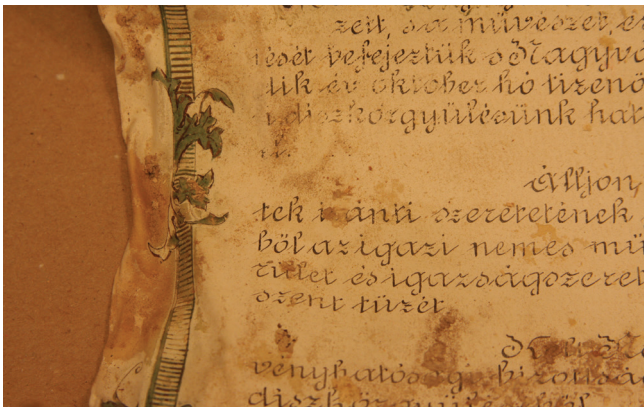 zeit, s a művészet, e
tését befejeztük s Nagyvá
tik év október hó tizenö
i díszközgyülésünk hat
Álljon,
tek iránti szeretetének
ből az igazi nemes mű
rület és igazságszeret
szent tüzét
vényhatósági bizottság
díszközgyüléséből